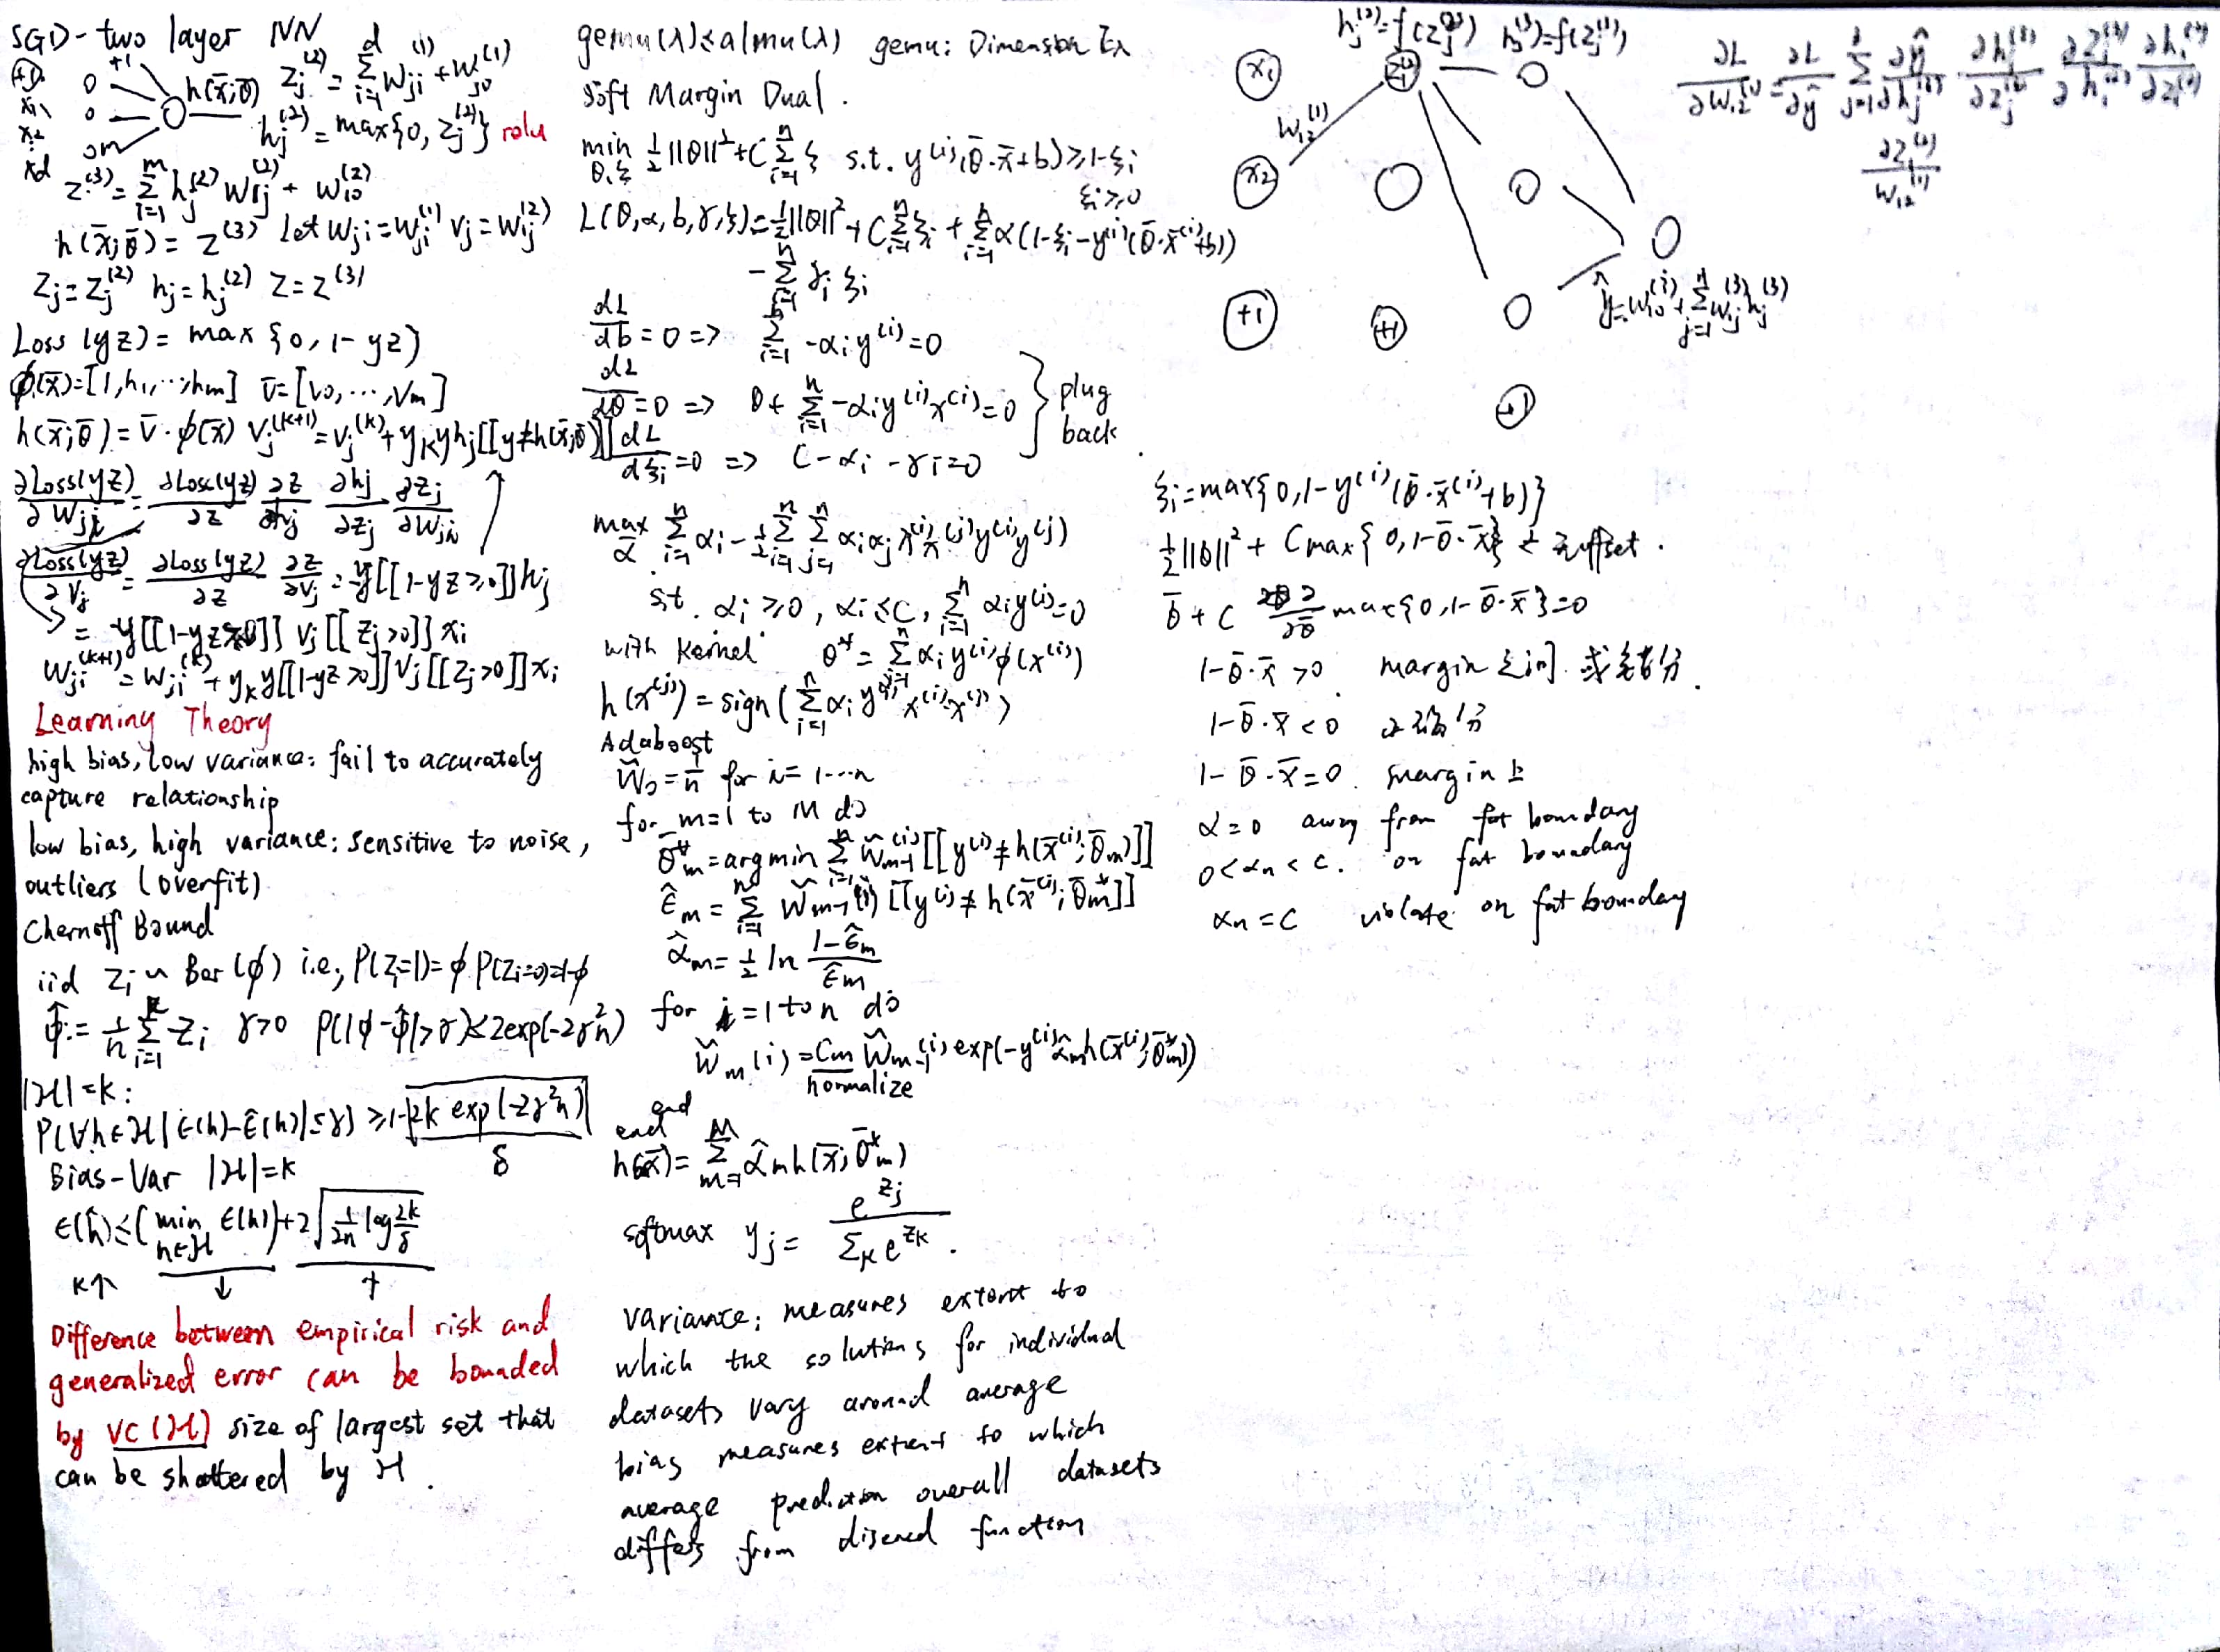 SGD - two layer NN
+1
+1 0 h(x̄;θ̄) z_j^(2) = Σ_{i=1}^d w_ji^(1) + w_j0^(1)
x1 0
x2 h_j^(2) = max{0, z_j^(2)} relu
xd 0m
z^(3) = Σ_{i=1}^m h_j^(2) w_1j^(2) + w_10^(2)
h(x̄;θ̄) = z^(3) Let w_ji = w_ji^(1) v_j = w_1j^(2)
z_j = z_j^(2) h_j = h_j^(2) z = z^(3)
Loss(yz) = max{0, 1-yz}
ϕ(x̄) = [1, h_1, ..., h_m] v̄ = [v_0, ..., v_m]
h(x̄;θ̄) = v̄·ϕ(x̄) v_j^(k+1) = v_j^(k) + y_k y h_j [[y≠h(x̄;θ̄)]]
∂Loss(yz)/∂w_ji = ∂Loss(yz)/∂z ∂z/∂h_j ∂h_j/∂z_j ∂z_j/∂w_ji
∂Loss(yz)/∂v_j = ∂Loss(yz)/∂z ∂z/∂v_j = -y[[1-yz≥0]]h_j
= -y[[1-yz≥0]] v_j [[z_j>0]] x_i
w_ji^(k+1) = w_ji^(k) + y_k y[[1-yz>0]] v_j [[z_j>0]] x_i
Learning Theory
high bias, low variance: fail to accurately
capture relationship
low bias, high variance: sensitive to noise,
outliers (overfit)
Chernoff Bound
iid z_i ~ Ber(ϕ) i.e, P(z_i=1)=ϕ P(z_i=0)=1-ϕ
ϕ̂ := 1/n Σ_{i=1} z_i γ>0 P(|ϕ-ϕ̂|>γ) ≤ 2exp(-2γ²n)
|H|=k:
P(∀h∈H |ε(h)-ε̂(h)| ≤ γ) ≥ 1-2k exp(-2γ²n)
δ
Bias-Var |H|=k
ε(ĥ) ≤ (min_{h∈H} ε(h)) + 2√(1/2n log 2k/δ)
k↑ ↓ ↑
Difference between empirical risk and
generalized error can be bounded
by VC(H) size of largest set that
can be shattered by H.
gemu(λ) ≤ almu(λ) gemu: Dimension E_λ
Soft Margin Dual.
min_{θ,ξ} 1/2||θ||² + C Σ_{i=1}^n ξ s.t. y^(i)(θ̄·x̄+b) ≥ 1-ξ_i
ξ_i ≥ 0
L(θ,α,b,γ,ξ) = 1/2||θ||² + C Σ_{i=1}^n ξ_i + Σ_{i=1}^n α(1-ξ_i-y^(i)(θ̄·x̄^(i)+b))
- Σ_{i=1}^n γ_i ξ_i
dL/db = 0 => Σ_{i=1}^n -α_i y^(i) = 0
dL/dθ = 0 => θ + Σ_{i=1}^n -α_i y^(i) x^(i) = 0 } plug
back.
dL/dξ_i = 0 => C-α_i-γ_i=0
max_α Σ_{i=1}^n α_i - 1/2 Σ_{i=1}^n Σ_{j=1}^n α_i α_j x^(i) x^(j) y^(i) y^(j)
s.t. α_i ≥ 0, α_i ≤ C, Σ_{i=1}^n α_i y^(i) = 0
with kernel θ* = Σ_{i=1}^n α_i y^(i) ϕ(x^(i))
h(x^(j)) = sign(Σ_{i=1}^n α_i y^(i) x^(i)·x^(j))
Adaboost
W̃_0 = 1/n for i = 1...n
for m=1 to M do
θ̄*_m = argmin Σ_{i=1}^n W̃_{m-1}^(i) [[y^(i) ≠ h(x̄^(i);θ̄_m)]]
ε̂_m = Σ_{i=1}^n W̃_{m-1}(i) [[y^(i) ≠ h(x̄^(i);θ̄*_m)]]
α̂_m = 1/2 ln (1-ε̂_m)/ε̂_m
for i=1 to n do
W̃_m(i) = C_m W̃_{m-1}^(i) exp(-y^(i) α̂_m h(x̄^(i);θ̄*_m))
normalize
end
end
h(x̄) = Σ_{m=1}^M α̂_m h(x̄;θ̄*_m)
softmax y_j = e^{z_j} / Σ_k e^{z_k}.
variance: measures extent to
which the solutions for individual
datasets vary around average
bias measures extent to which
average prediction overall datasets
differs from disered function
h_j^(2)=f(z_j^(2)) h_j^(3)=f(z_j^(3))
x1
w_12^(1)
x2
+1 +1
+1
ŷ = w_10^(3) + Σ_{j=1}^n w_1j^(3) h_j^(3)
∂L/∂w_12^(1) = ∂L/∂ŷ Σ_{j=1}^3 ∂ŷ/∂h_j^(3) · ∂h_j^(3)/∂z_j^(3) ∂z_j^(3)/∂h_1^(2) ∂h_1^(2)/∂z_1^(2)
∂z_1^(2)/w_12^(1)
ξ_i = max{0, 1-y^(i)(θ̄·x̄^(i)+b)}
1/2||θ||² + C max{0, 1-θ̄·x̄} 无offset.
θ̄ + C ∂/∂θ̄ max{0, 1-θ̄·x̄} = 0
1-θ̄·x̄ > 0 margin 之间 或错分.
1-θ̄·x̄ < 0 正确分
1-θ̄·x̄ = 0. margin 上
α=0 away from fat boundary
0<α_n<C. on fat boundary
α_n=C violate on fat boundary